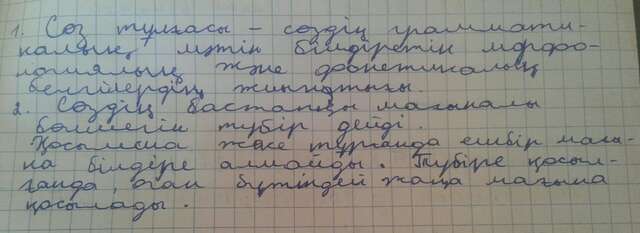 1. Сөз тұлғасы – сөздің граммати-
калық мәтін білдіретін морфо-
логиялық және фонетикалық
белгілердің жиынтығы.
2. Сөздің бастапқы мағыналы
бөлшегін түбір дейді.
Қосымша жеке тұрғанда ешбір мағы-
на білдіре алмайды. Түбірге қосыл-
ғанда, оған бүтіндей жаңа мағына
қосылады.